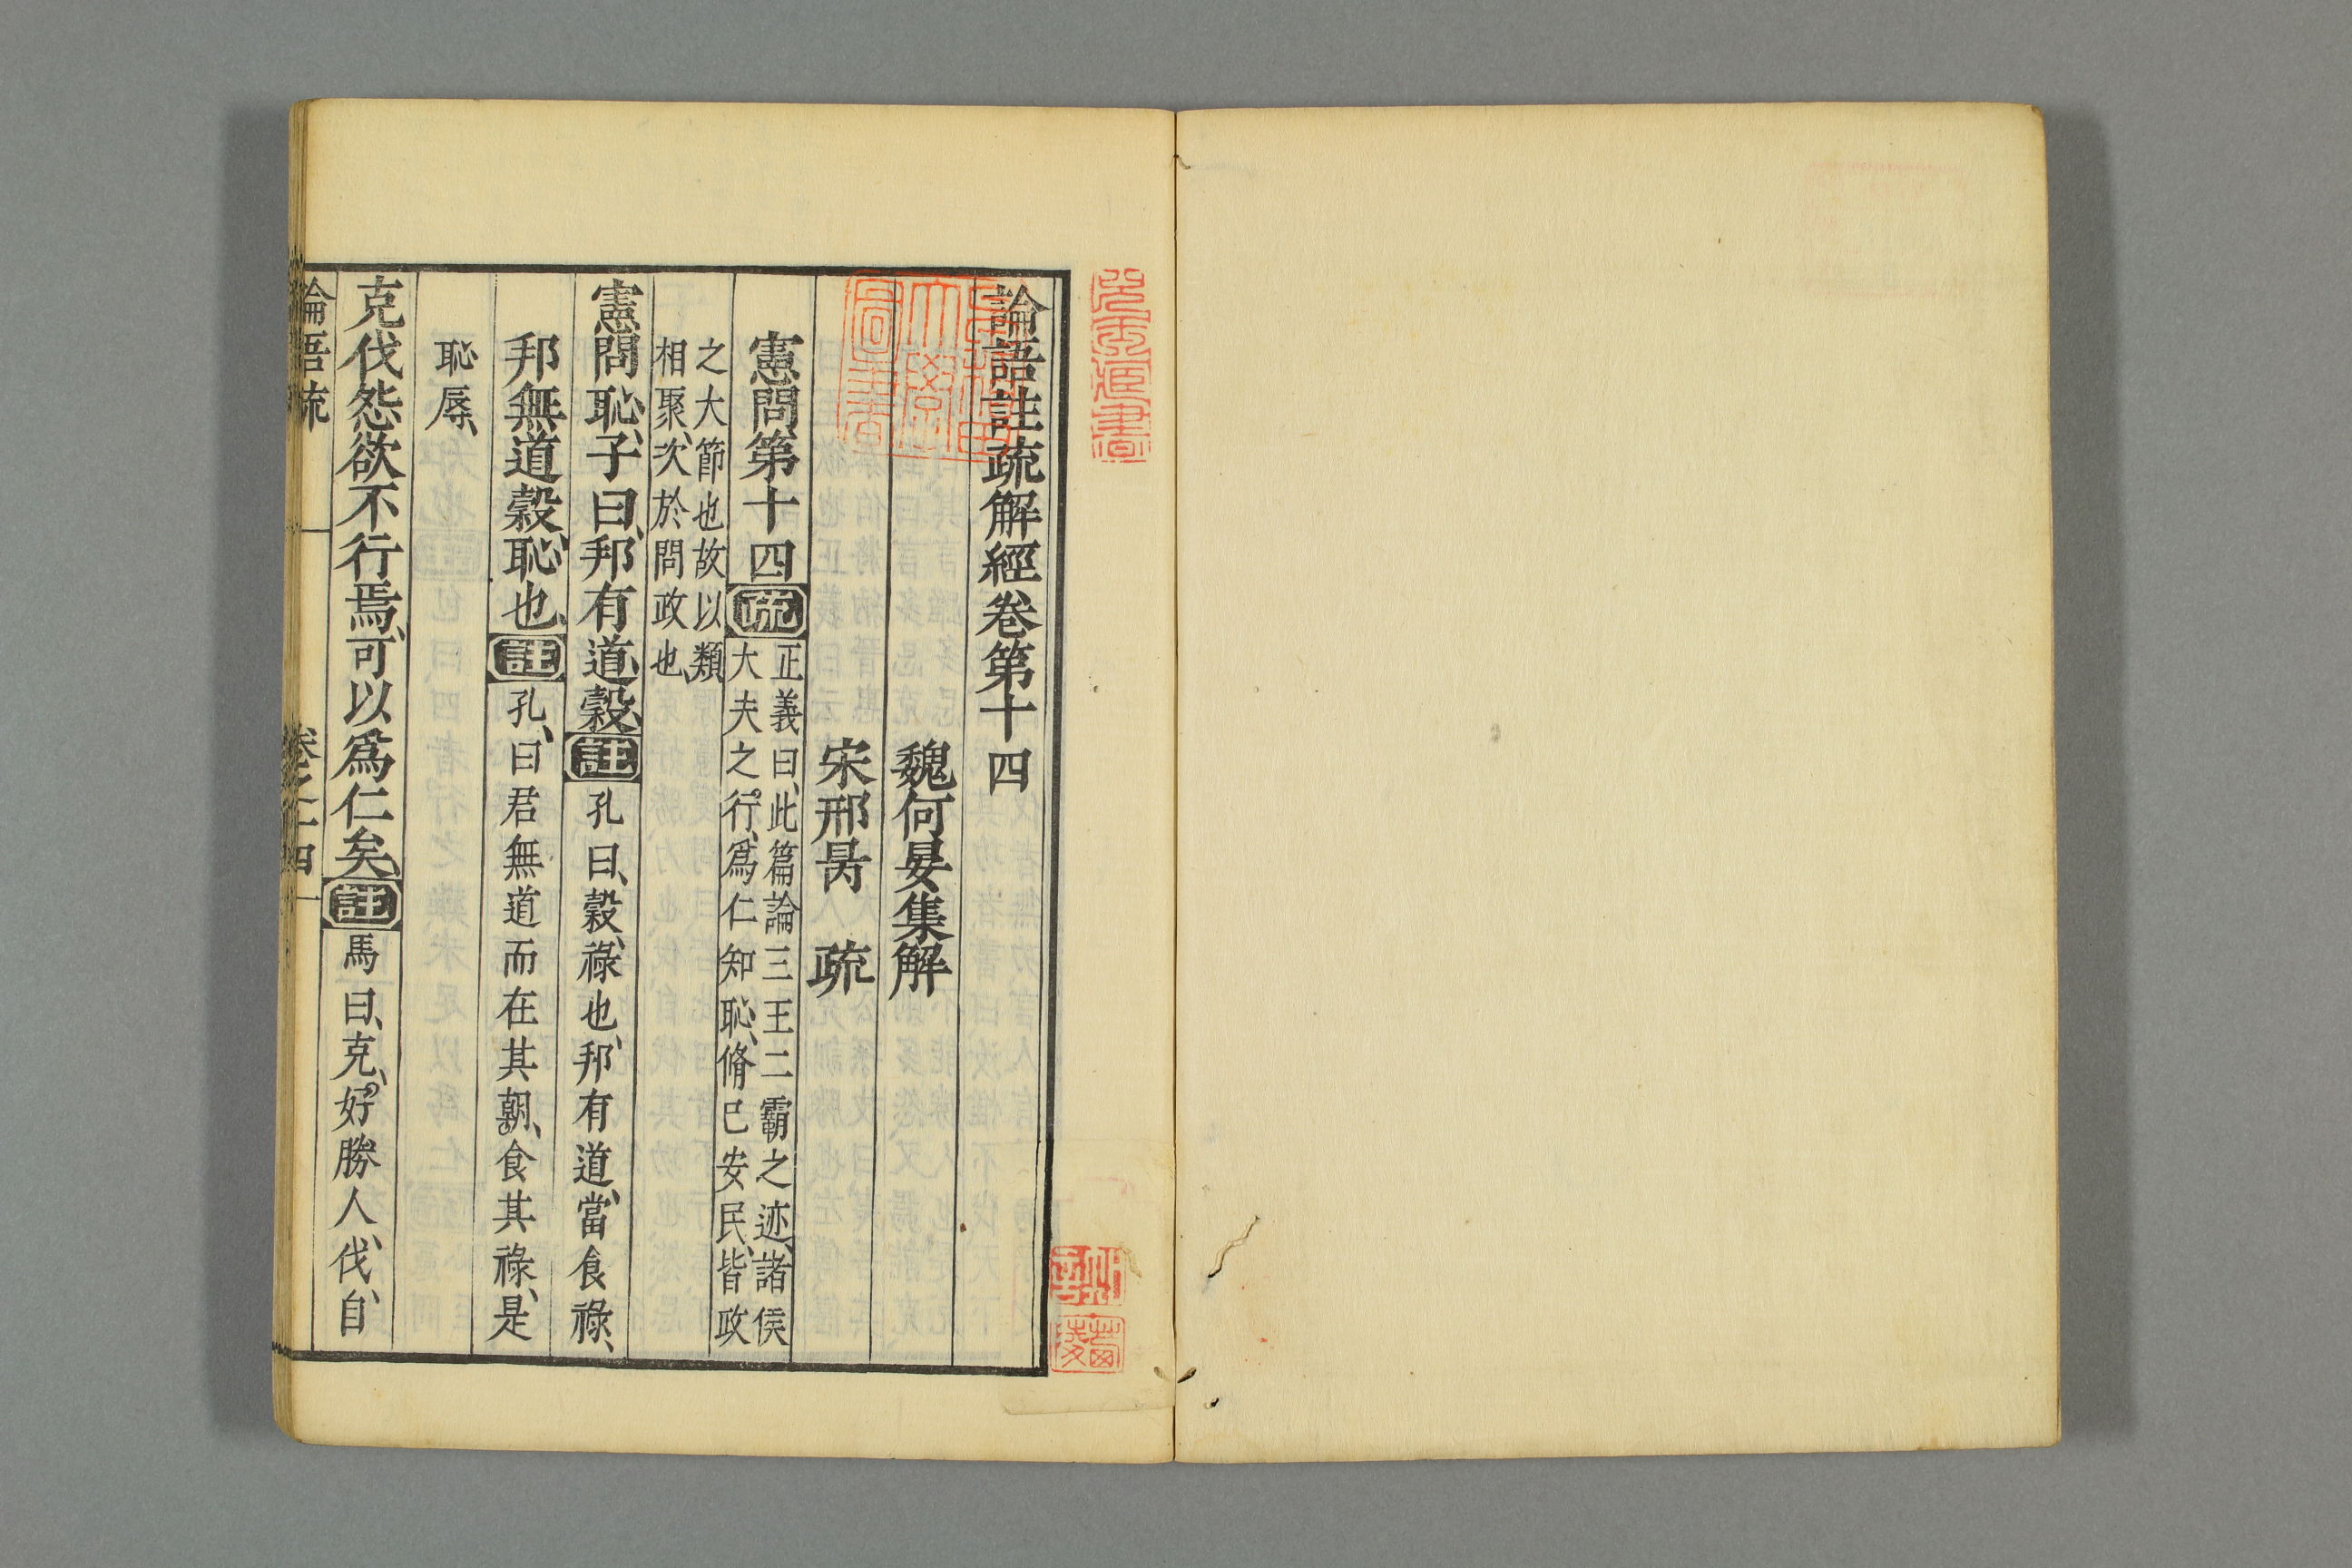 論語註疏解經卷第十四
魏何晏集解
宋邢昺 疏
憲問第十四疏正義曰、此篇論三王二霸之迹、諸侯
大夫之行、爲仁知恥、脩己安民、皆政
之大節也故以類
相聚、次於問政也、
憲問恥、子曰、邦有道、穀、註孔曰、穀、祿也、邦有道、當食祿、
邦無道穀、恥也、註孔、曰君無道而在其朝、食其祿、是
恥辱、
克伐怨欲不行焉、可以爲仁矣、註馬曰、克、好勝人、伐、自
論語疏 卷之十四 一
早稻田大學圖書